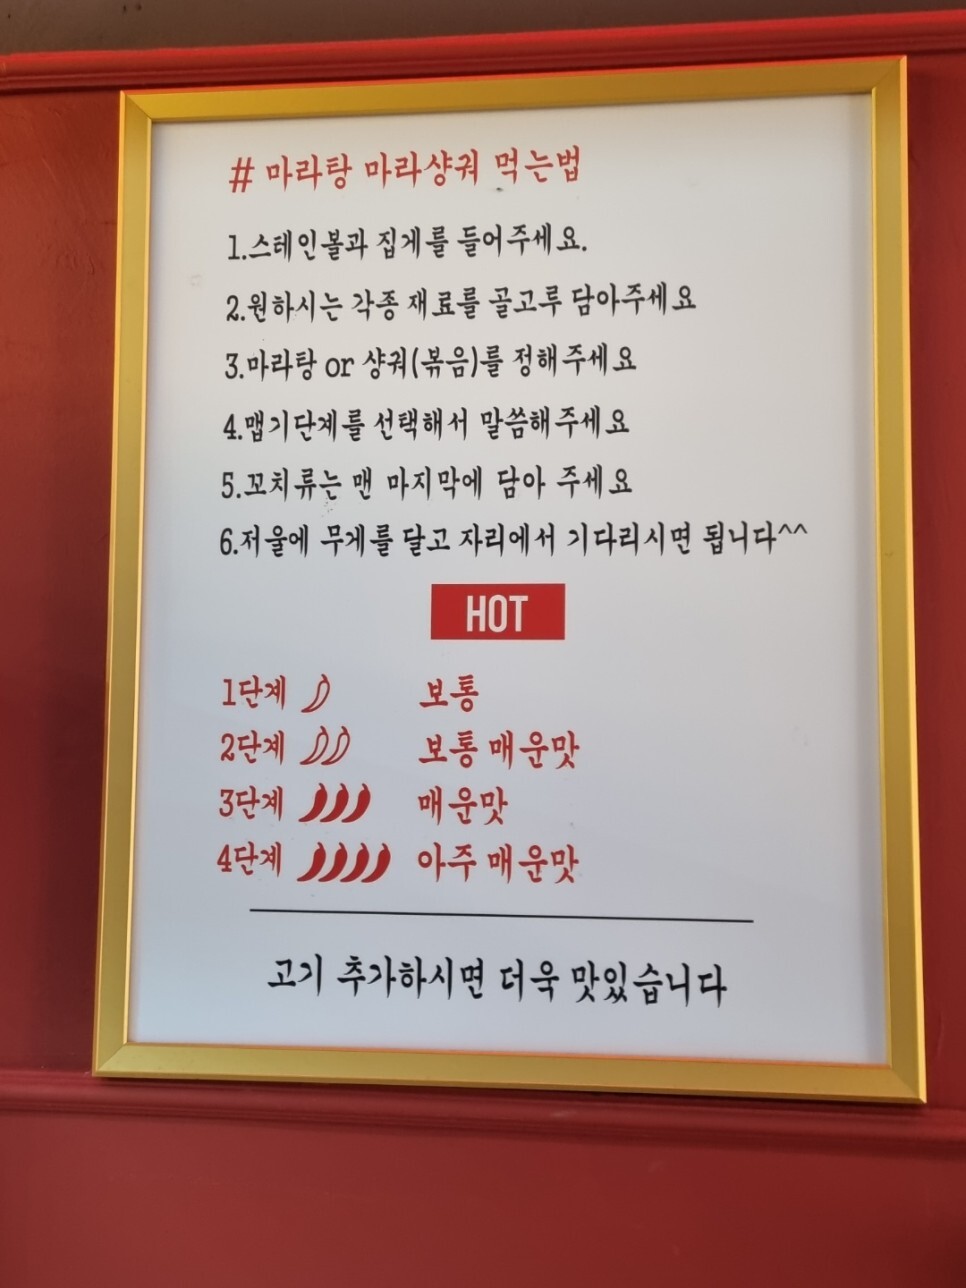 # 마라탕 마라샹궈 먹는법
1.스테인볼과 집게를 들어주세요.
2.원하시는 각종 재료를 골고루 담아주세요
3.마라탕 or 샹궈(볶음)를 정해주세요
4.맵기단계를 선택해서 말씀해주세요
5.꼬치류는 맨 마지막에 담아 주세요
6.저울에 무게를 달고 자리에서 기다리시면 됩니다^^
HOT
1단계 보통
2단계 보통 매운맛
3단계 매운맛
4단계 아주 매운맛
고기 추가하시면 더욱 맛있습니다